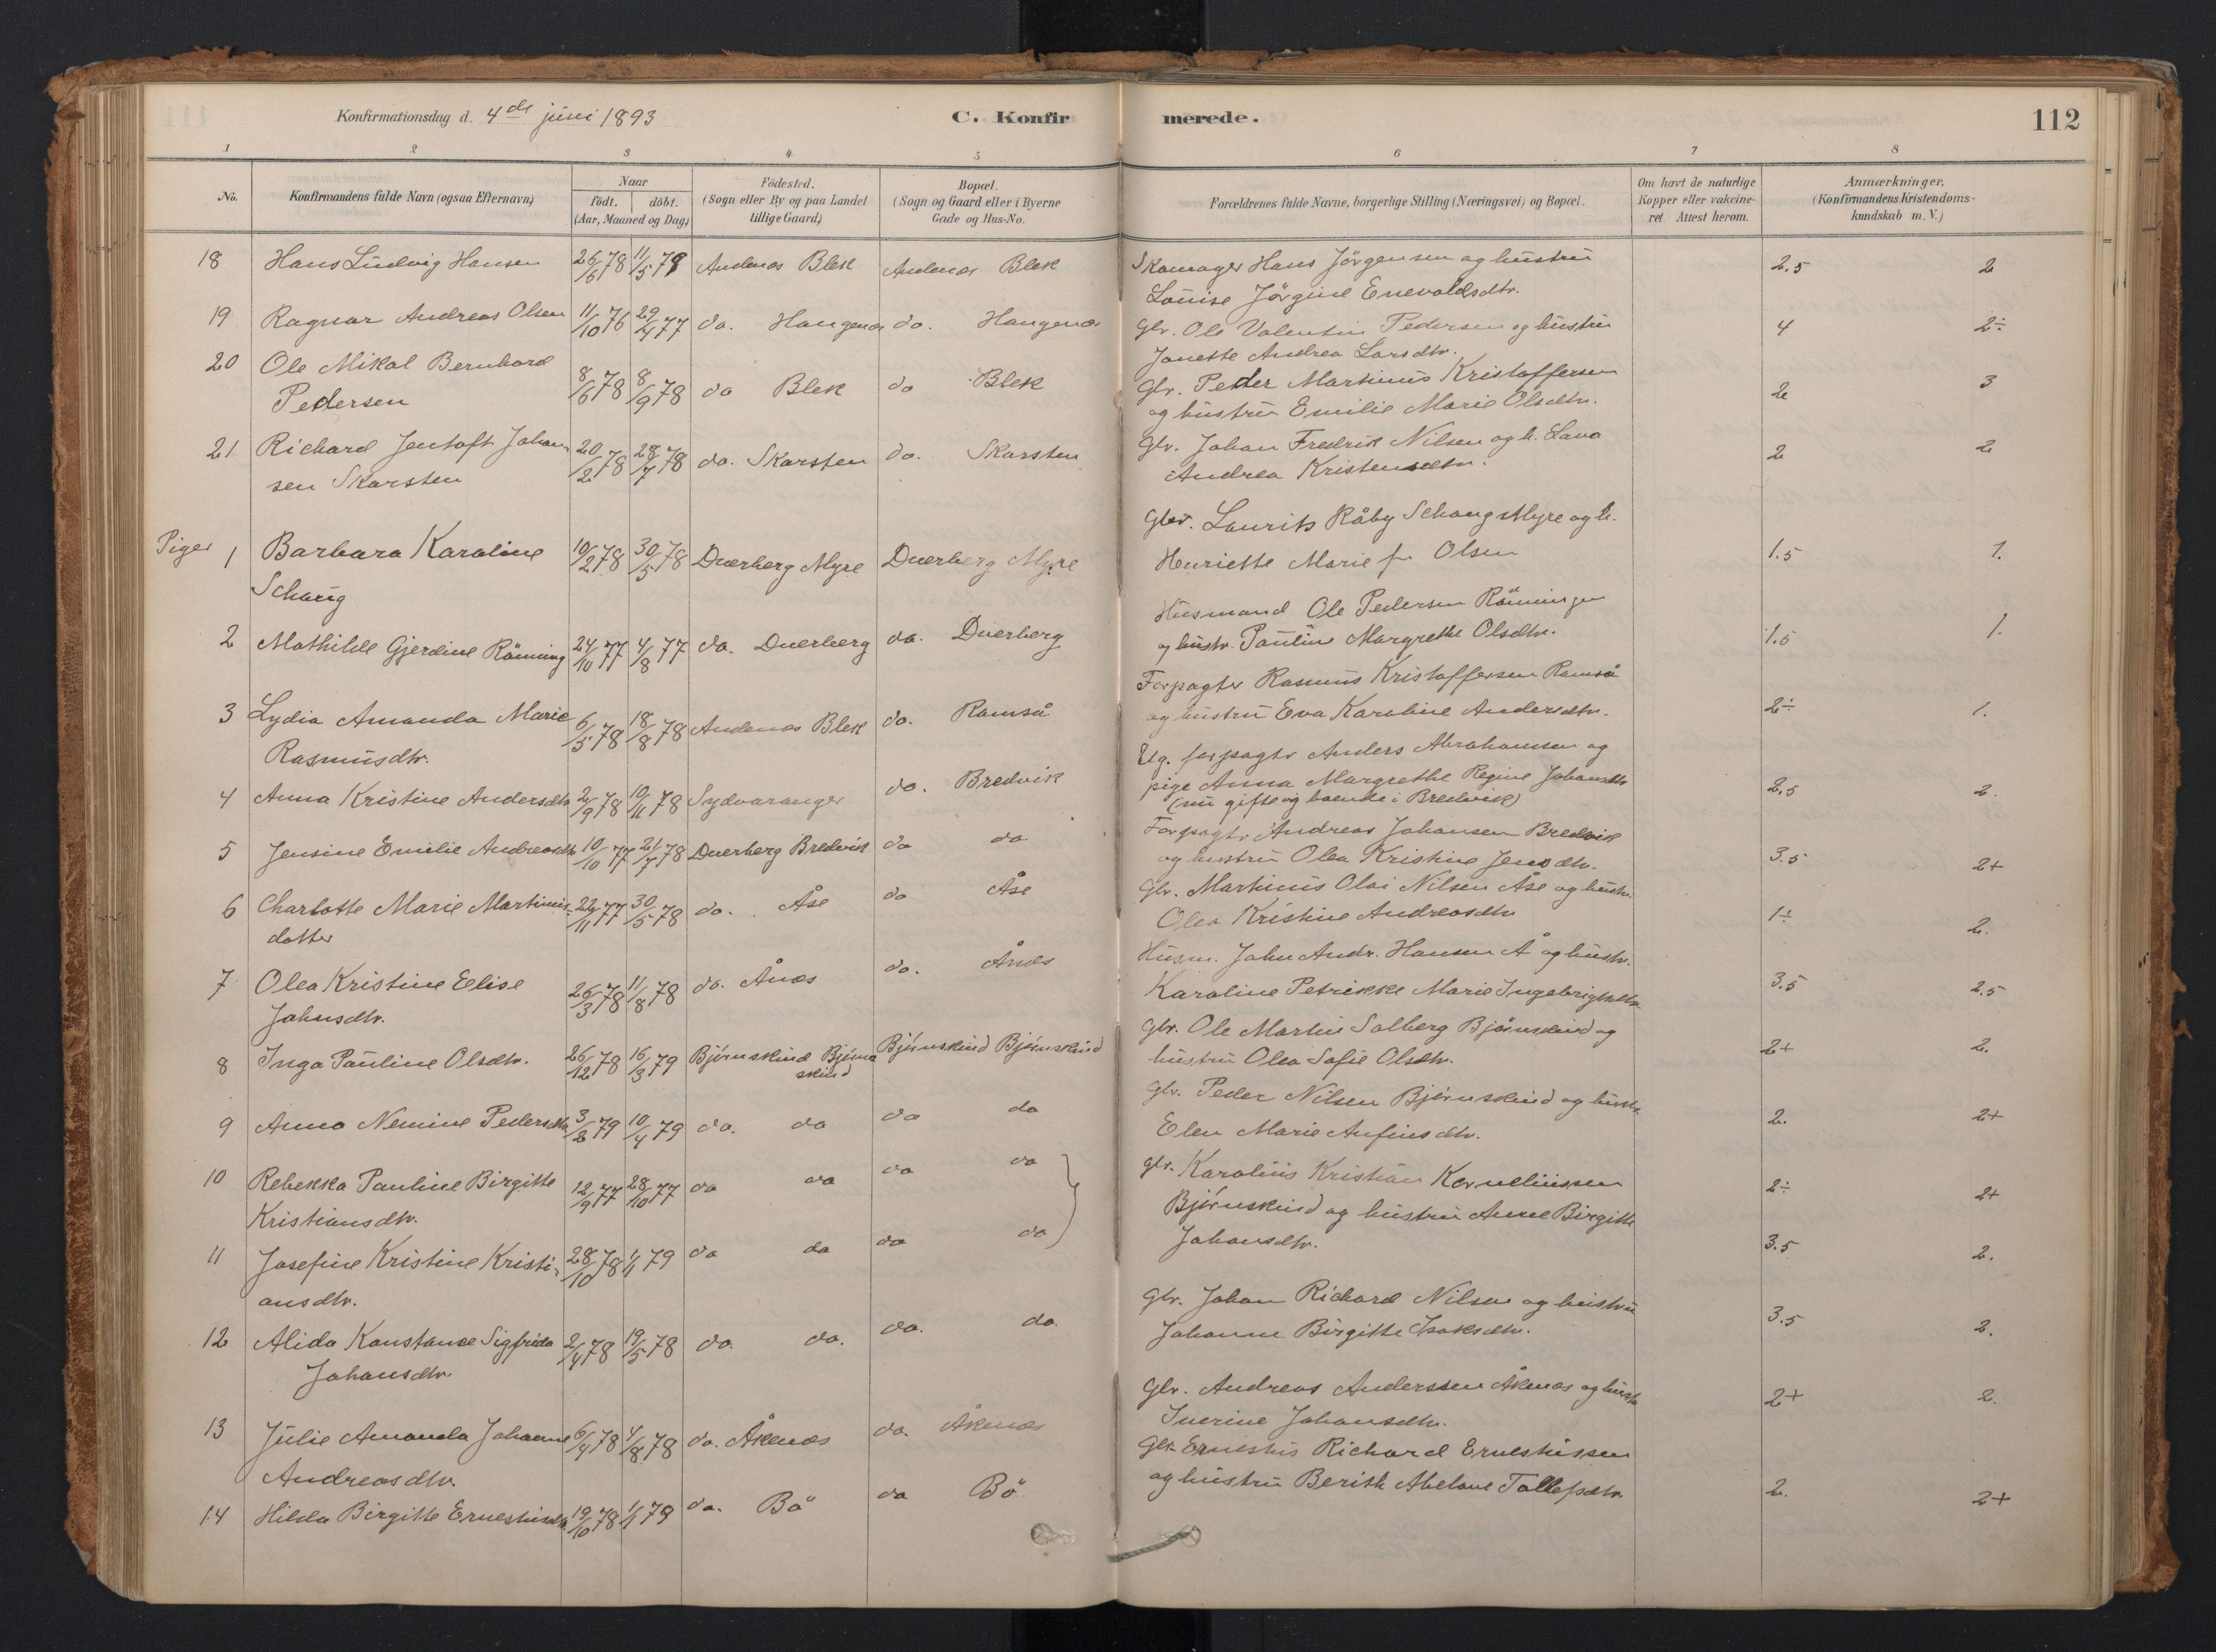 Konfirmationsdag d. 4de juni 1893
C. Konfirmerede.
112
1 2 3 4 5 6 7 8
No.
Konfirmandens fulde Navn (ogsaa Efternavn)
Naar
födt. döbt.
(Aar, Maaned og Dag)
Födested.
(Sogn eller By og paa Landet
tillige Gaard)
Bopæl.
(Sogn og Gaard eller i Byerne
Gade og Hus-No.
Forældrenes fulde Navne, borgerlige Stilling (Næringsvei) og Bopæl.
Om havt de naturlige
Kopper eller vakcine-
ret. Attest herom.
Anmærkninger.
(Konfirmandens Kristendoms-
kundskab m. V.)
18 Hans Ludvig Hansen 26/6 78 11/5 79 Andenæs Blek Andenæs Blek Skomager Hans Jörgensen og hustru 2.5 2
Louise Jörgine Enevoldsdtr.
19 Ragnar Andreas Olsen 11/10 76 29/4 77 do. Haugenæs do. Haugenæs Gbr. Ole Valentin Pedersen og hustru 4 2÷
Janette Andrea Larsdtr.
20 Ole Mikal Bernhard
Pedersen 8/6 78 8/9 78 do Blek do Blek Gbr. Peder Martinus Kristoffersen 2 3
og hustru Emilie Marie Olsdtr.
21 Richard Jentoft Johan-
sen Skarsten 20/2 78 28/7 78 do. Skarsten do. Skarsten Gbr. Johan Fredrik Nilsen og h. Lava 2 2
Andrea Kristensdtr.
Piger
1 Barbara Karoline
Schaug 10/2 78 30/5 78 Dverberg Myre Dverberg Myre Gbr. Laurits Råby Schaug Myre og h. 1.5 1.
Henriette Marie f. Olsen
2 Mathilde Gjerdine Rönning 24/10 77 4/8 77 do. Dverberg do. Dverberg Husmand Ole Pedersen Rönningen 1.5 1.
og hustr. Pauline Margrethe Olsdtr.
3 Lydia Amanda Marie
Rasmusdtr. 6/5 78 18/8 78 Andenæs Blek do. Ramså Forpagter Rasmus Kristoffersen Ramså 2÷ 1.
og hustru Eva Karoline Andersdtr.
4 Anna Kristine Andersdtr 2/9 78 10/11 78 Sydvaranger do. Bredvik Ug. forpagtr Anders Abrahamsen og 2.5 2.
pige Anna Margrethe Regine Johansdtr
(nu gifte og boende i Bredvik)
5 Jensine Emilie Andreasdtr 10/10 77 21/7 78 Dverberg Bredvik do do Forpagtr Andreas Johansen Bredvik 3.5 2+
og hustru Olea Kristine Jensdtr.
6 Charlotte Marie Martinus-
datter 22/11 77 30/5 78 do. Åse do Åse Gbr. Martinus Olai Nilsen Åse og hustr. 1÷ 2.
Olea Kristine Andreasdtr
7 Olea Kristine Elise
Johnsdtr. 26/3 78 11/8 78 do. Ånæs do. Ånæs Husm. John Andr. Hansen Å og hustr. 3.5 2.5
Karoline Petrikke Marie Ingebrigtsdtr
8 Inga Pauline Olsdtr. 26/12 78 16/3 79 Björnskind Björn-
skind Björnskind Björnskind Gbr. Ole Martin Solberg Björnskind og 2+ 2.
hustru Olea Sofie Olsdtr.
9 Anna Nemine Pedersdtr. 3/2 79 10/4 79 do. do do do Gbr. Peder Nilsen Björnskind og hustr. 2. 2+
Elen Marie Anfinsdtr.
10 Rebekka Pauline Birgitte
Kristiansdtr. 12/9 77 28/10 77 do do do do Gbr. Karolius Kristian Korneliussen 2÷ 2+
Björnskind og hustru Anne Birgitte
Johansdtr.
11 Josefine Kristine Kristi-
ansdtr. 28/10 78 1/1 79 do do do do 3.5 2.
12 Alida Konstanse Sigfrida
Johansdtr. 2/4 78 19/5 78 do. do. do. do. Gbr. Johan Richard Nilsen og hustru 3.5 2.
Johanne Birgitte Isaksdtr.
13 Julie Amanda Johanne
Andreasdtr. 6/4 78 4/8 78 do. Åknæs do. Åknæs Gbr. Andreas Anderssen Åknæs og hustr 2+ 2.
Iverine Johansdtr.
14 Hilda Birgitte Ernestusdtr 19/10 78 1/1 79 do. Bö do Bö Gbr Ernestus Richard Ernestussen 2. 2+
og hustru Berith Abelone Tollefsdtr.